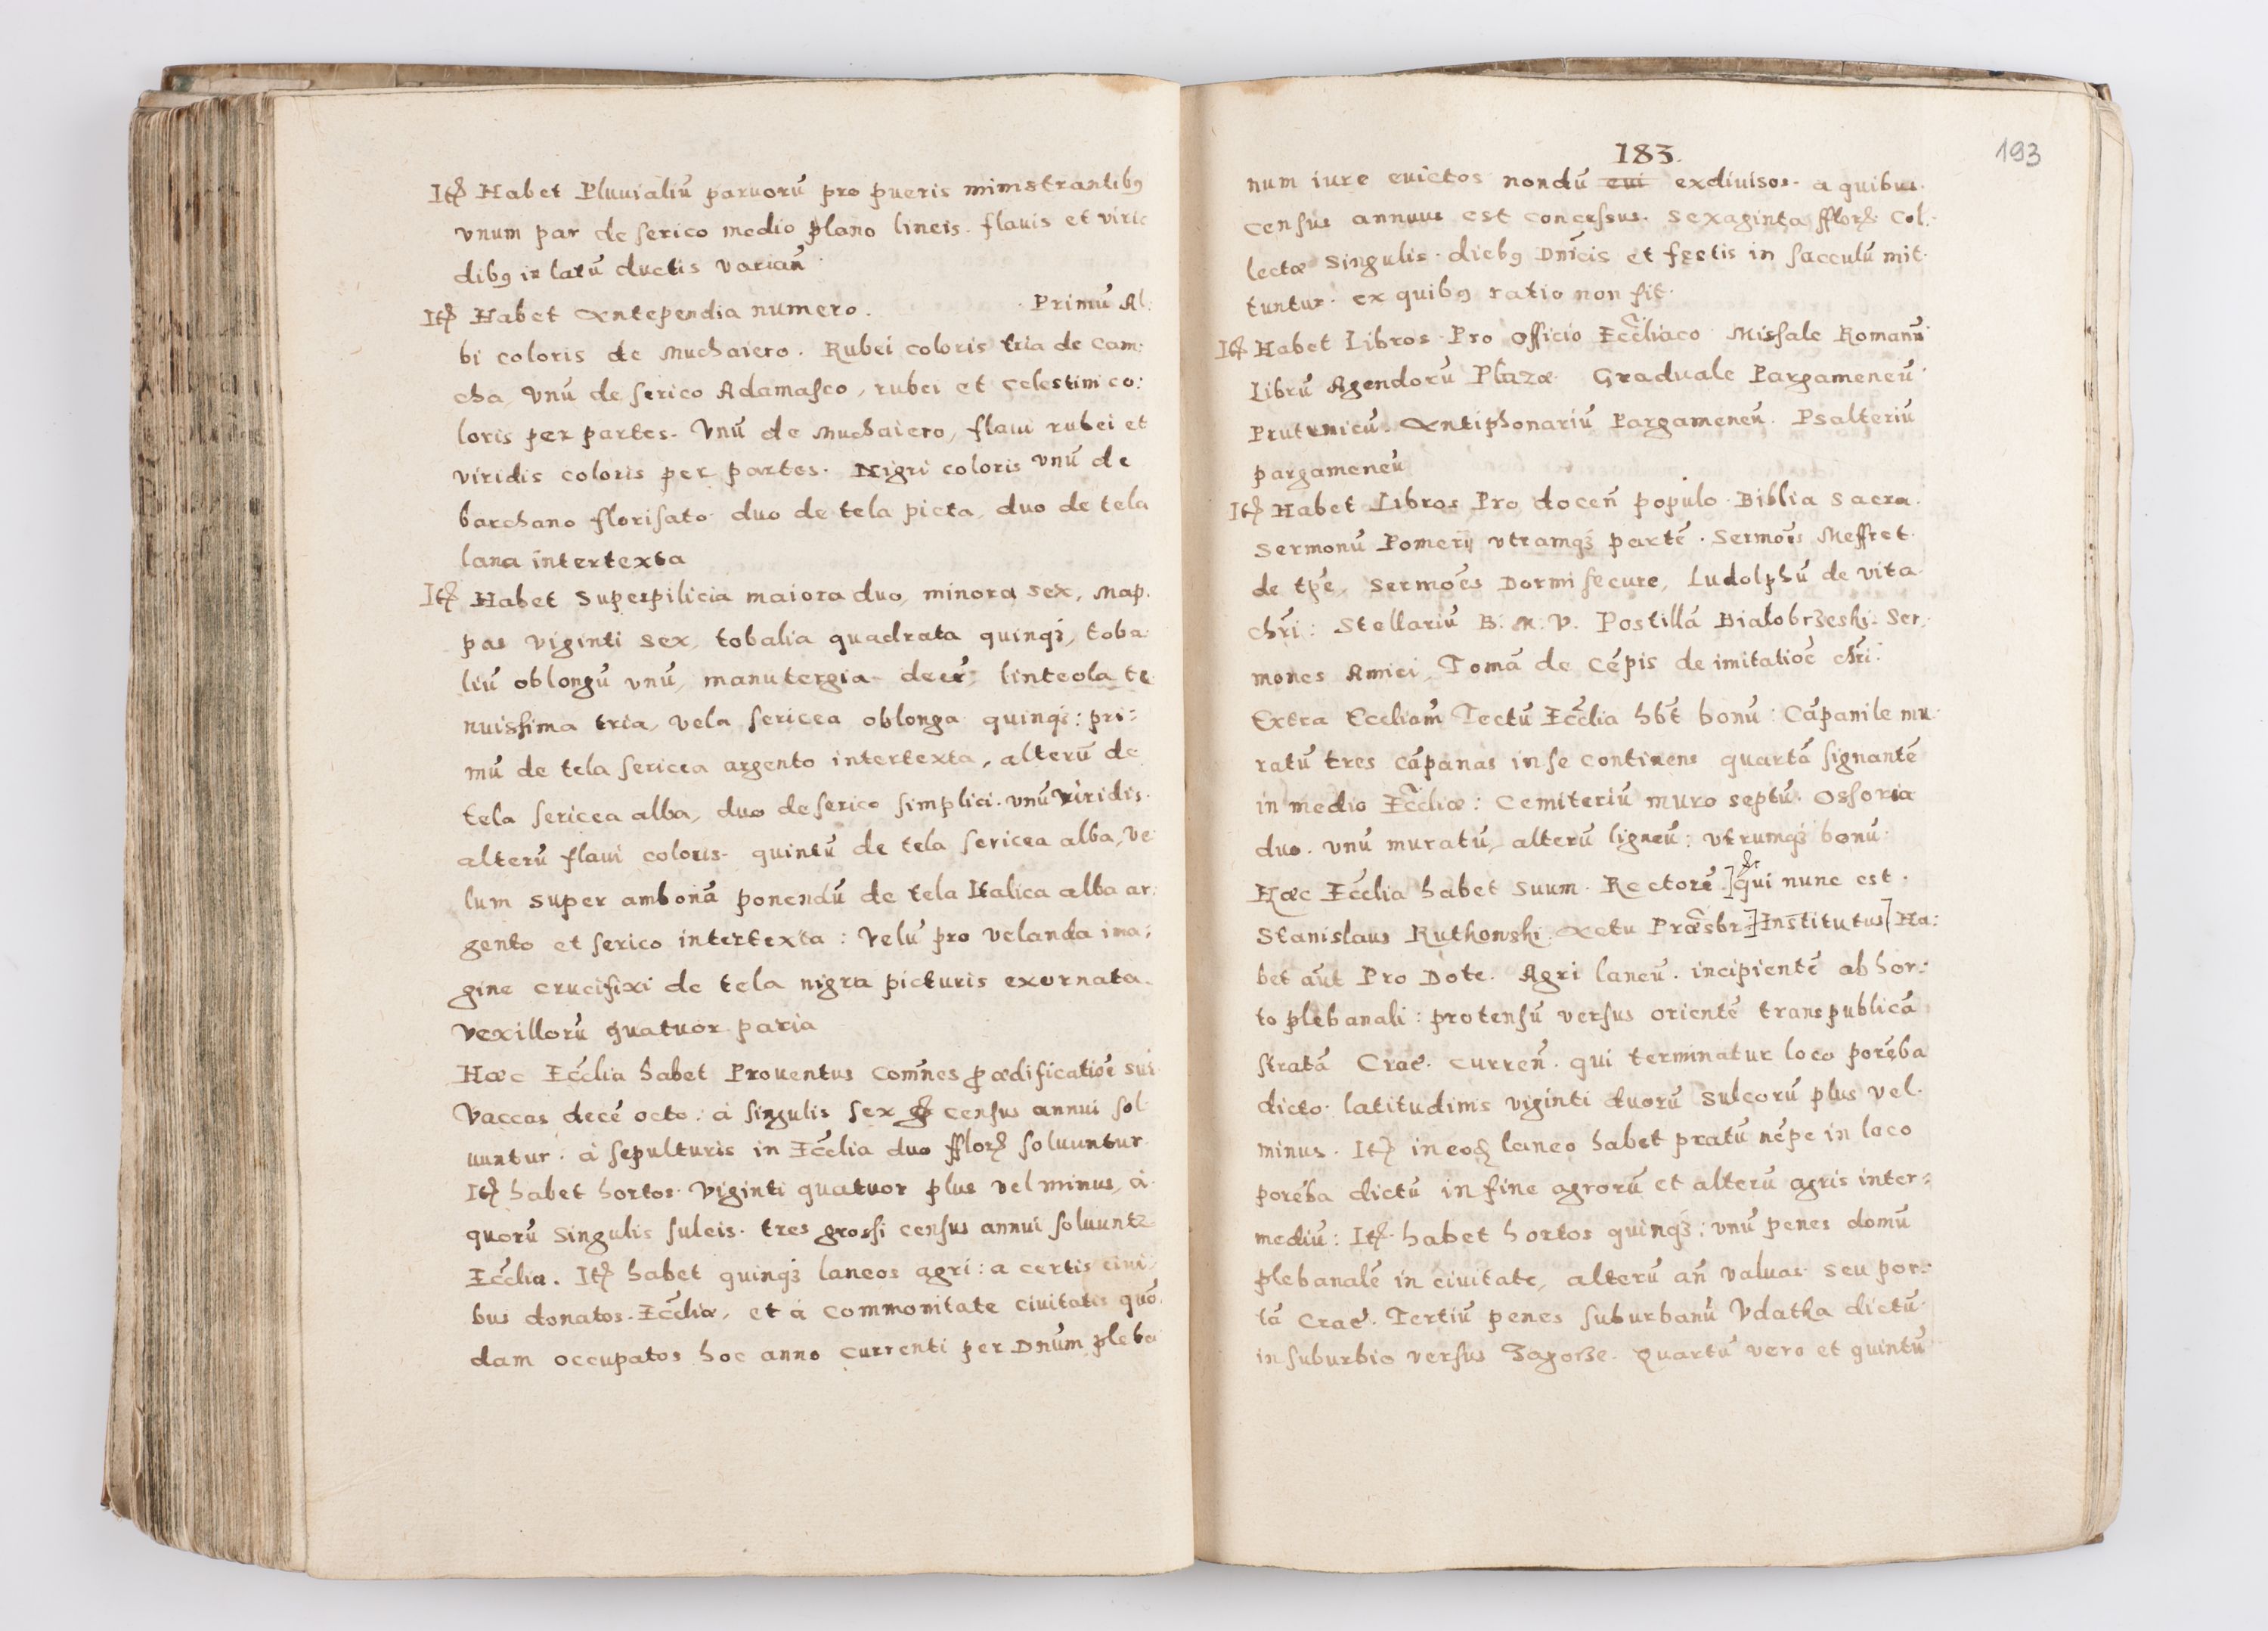 Itꝫ Habet Pluuialiũ paruorũ pro pueris ministrantibꝰ
vnum par de serico medio plano lineis. flauis et viri
dibꝰ in latũ ductis varian̄
Itꝫ Habet Antependia numero. Primũ Al:
bi coloris de Muchaiero. Rubei coloris tria de Cam:
cha, Vnũ de serico Adamasco, rubei et celestini co:
loris per partes. Vnũ de Muchaiero, flaui rubei et
viridis coloris per partes. Nigri coloris vnũ de
barchano florisato duo de tela picta, duo de tela
lana intertexta
Itꝫ Habet Superpilicia maiora duo, minora sex, Map.
pas viginti sex, tobalia quadrata quinqꝫ, toba.
liũ oblongũ vnũ, manutergia decẽ, linteola te
nuissima tria, vela sericea oblonga quinqꝫ: pri:
mũ de tela sericea argento intertexta, alterũ de
tela sericea alba, duo de serico simplici. vnũ viridis.
alterũ flaui coloris. quintũ de tela sericea alba, Ve
lum super ambonã ponendũ de tela Italica alba ar:
gento et serico intertexta: Velũ pro velanda ima:
gine crucifixi de tela nigra picturis exornata.
Vexillorũ quatuor paria
Hæc Eccĺia habet Prouentus Com̃nes ꝓ ædificatiõe sui
Vaccas decẽ octo: à singulis sex gꝛ census annui sol
uuntur: à sepulturis in Eccĺia duo fflorꝫ soluuntur
Itꝫ habet hortos viginti quatuor plus vel minus, à
quorũ singulis sulcis. tres grossi census annui soluuntꝛ
Eccĺiæ. Itꝫ habet quinqꝫ laneos agri: a certis ciui
bus donatos Eccĺiæ, et à Commonitate Ciuitatis quõ
dam occupatos hoc anno currenti per Dnũm pleba
183. 193
num iure euictos nondũ cui exdiuisos. a quibus.
census annuus est concessus. sexaginta fflorꝫ. Col:
lectæ singulis diebꝰ Dnĩcis et festis in sacculũ mit.
tuntur. ex quibꝰ ratio non fit.
Itꝫ Habet Libros Pro Officio Ecclĩaco Missale Romanũ
Librũ Agendorũ Plazæ. Graduale Pargameneũ
Prutenicũ. Antiphonariũ Pargameneũ. Psalteriũ
pargameneũ
Itꝫ Habet Libros Pro docen̄ populo Biblia Sacra.
Sermonũ Pomerij vtramqꝫ partẽ. Sermões Meffret
de tp̃e, Sermões Dormi secure, Ludolphũ de vita
chr̃i: Stellariũ B. M. V. Postillã Bialobrzeski. Ser.
mones Amici, Tomã de Cẽpis de imitatiõe chr̃i.
Extra Eccliam̃ Tectũ Eccĺia hb̃t bonũ: Cãpanile mu.
ratũ tres cãpanas in se continens quartã signantẽ
in medio Ecclĩæ: Cemiteriũ muro septũ. Ossoria
duo. vnũ muratũ, alterũ ligneũ: vtrumqꝫ bonũ
Hæc Eccĺia habet suum Rectorẽ.] qui nunc est.
Stanislaus Ruthowski. Actu Præsbr̃] Institutus] Ha:
bet aũt Pro Dote. Agri laneũ. incipientẽ ab hor:
to plebanali: protensũ versus orientẽ trans publicã
stratã Crac̃. curren̄. qui terminatur loco porẽba
dicto latitudinis viginti duorũ sulcorũ plus vel.
minus. Itꝫ in eod̃ laneo habet pratũ nẽpe in loco
porẽba dictũ in fine agrorũ et alterũ agris inter:
mediũ: Itꝫ habet hortos quinqꝫ: vnũ penes domũ
plebanalẽ in ciuitate, alterũ an̄ valuas seu por:
tã Crac̃. Tertiũ penes suburbanũ Vdatka dictũ
in suburbio versus Zagorze. Quartũ vero et quintũ